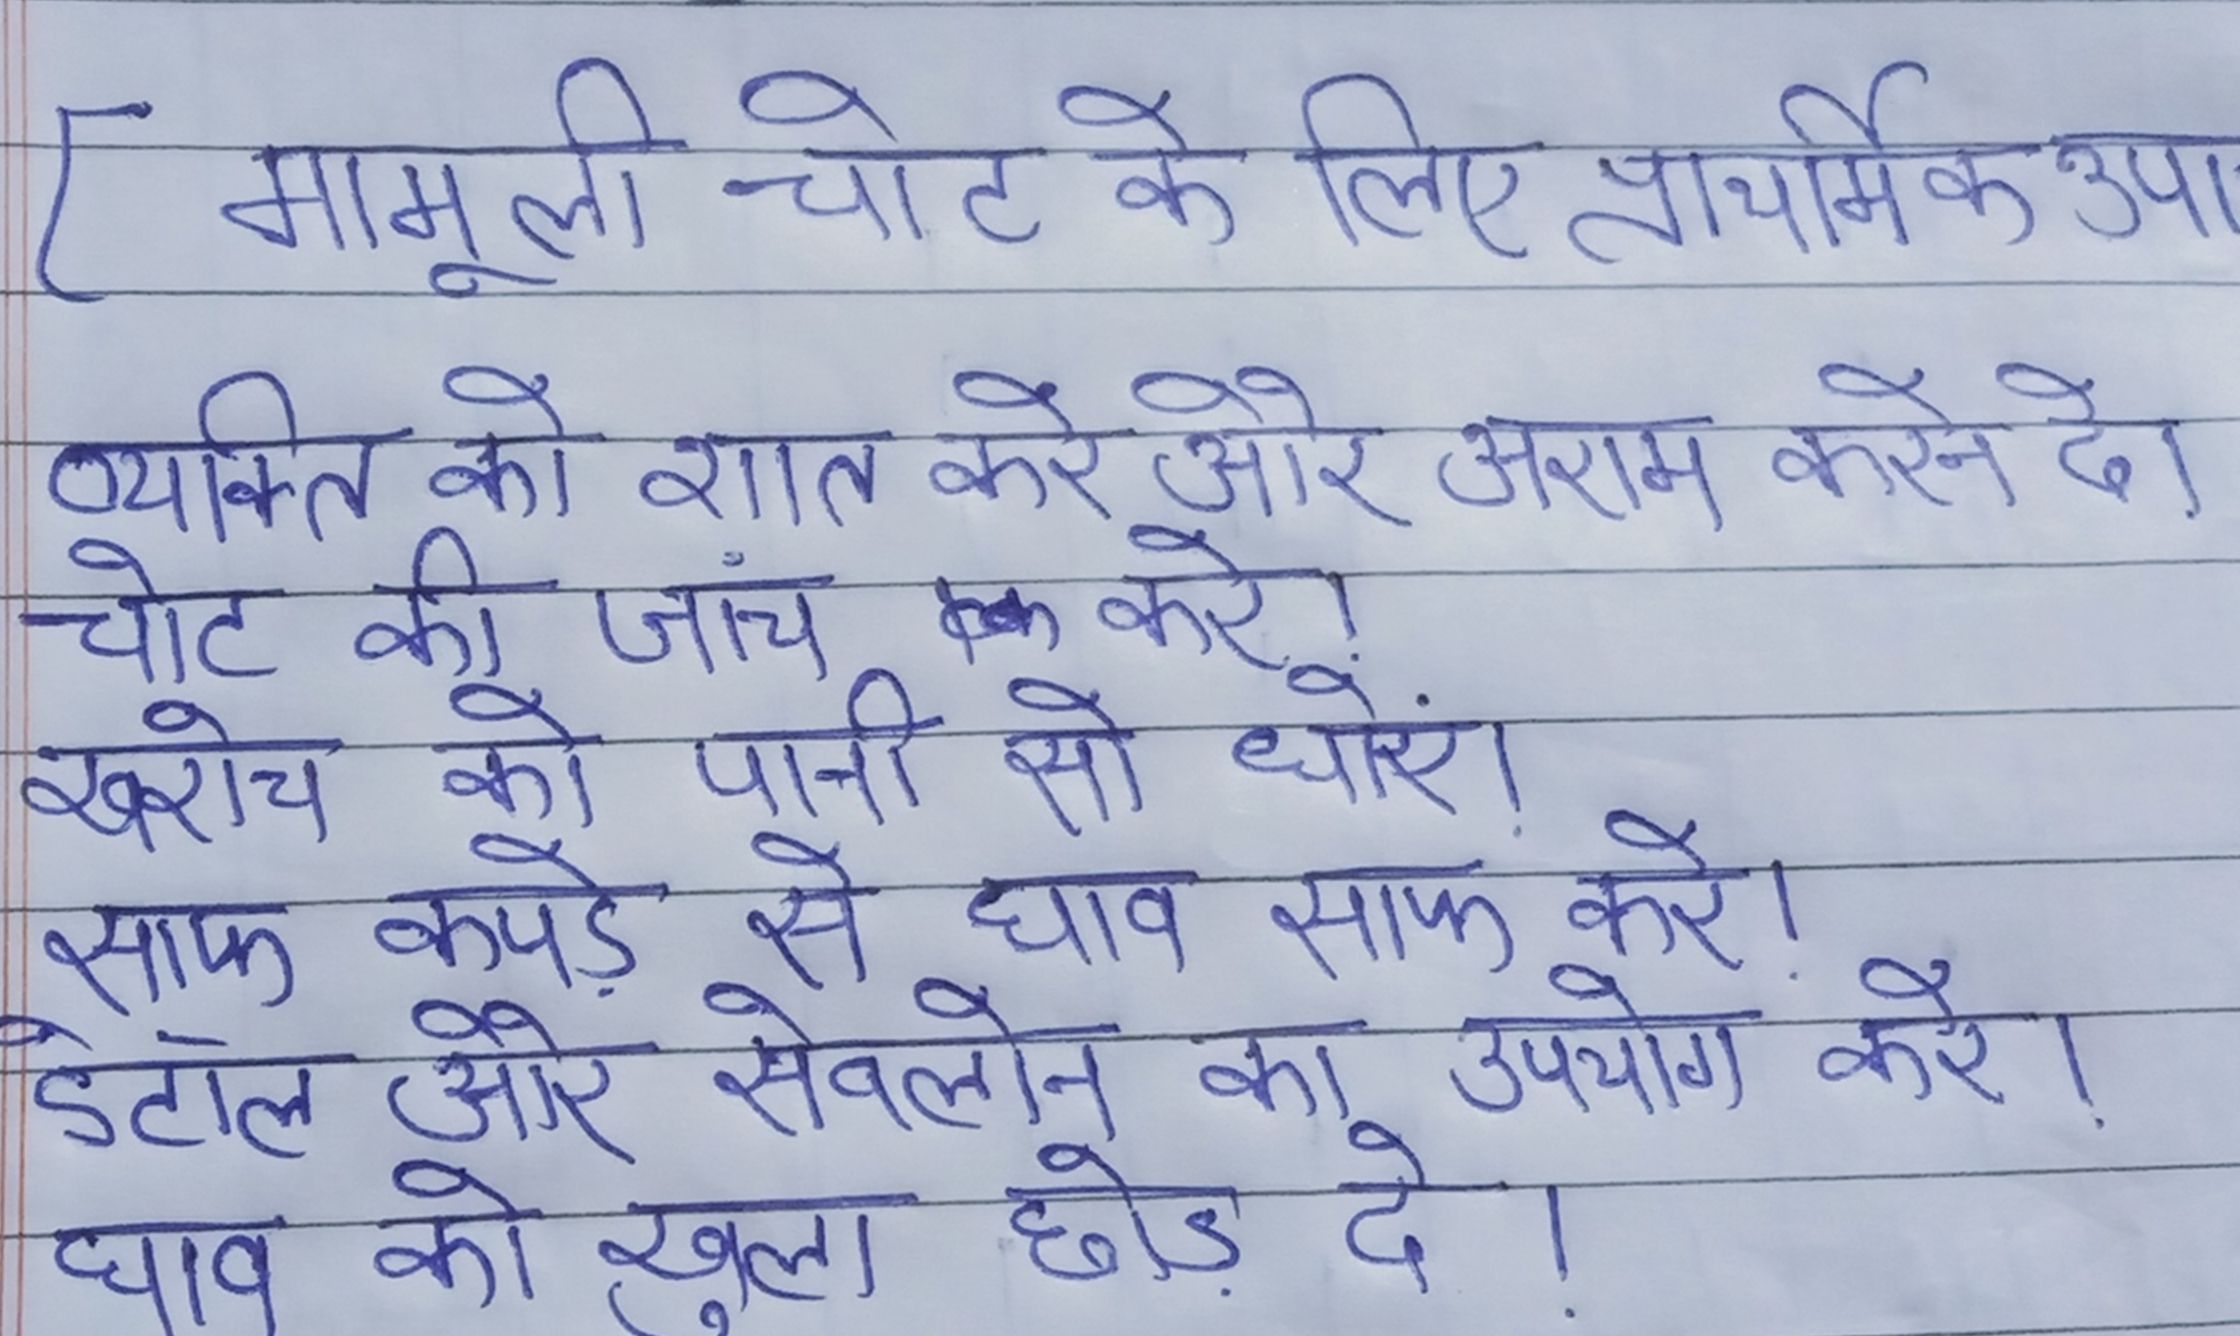 [ मामूली चोट के लिए प्राथमिक उपा
व्यक्ति को शात करे और अराम करेन दे।
चोट की जांच करे।
खरोच को पानी सो धोएं।
साफ कपड़े से घाव साफ करे।
डेटॉल और सेवलोन का उपयोग करे।
घाव को खुला छोड़ दे।